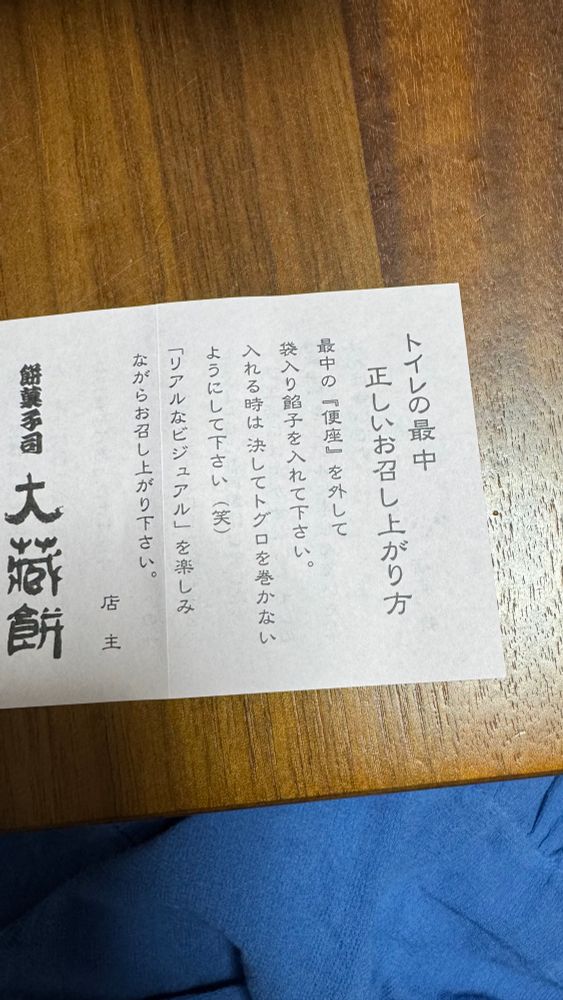 トイレの最中
正しいお召し上がり方
最中の『便座』を外して
袋入り餡子を入れて下さい。
入れる時は決してトグロを巻かない
ようにして下さい（笑）
「リアルなビジュアル」を楽しみ
ながらお召し上がり下さい。
店主
餅菓子司
大藏餅